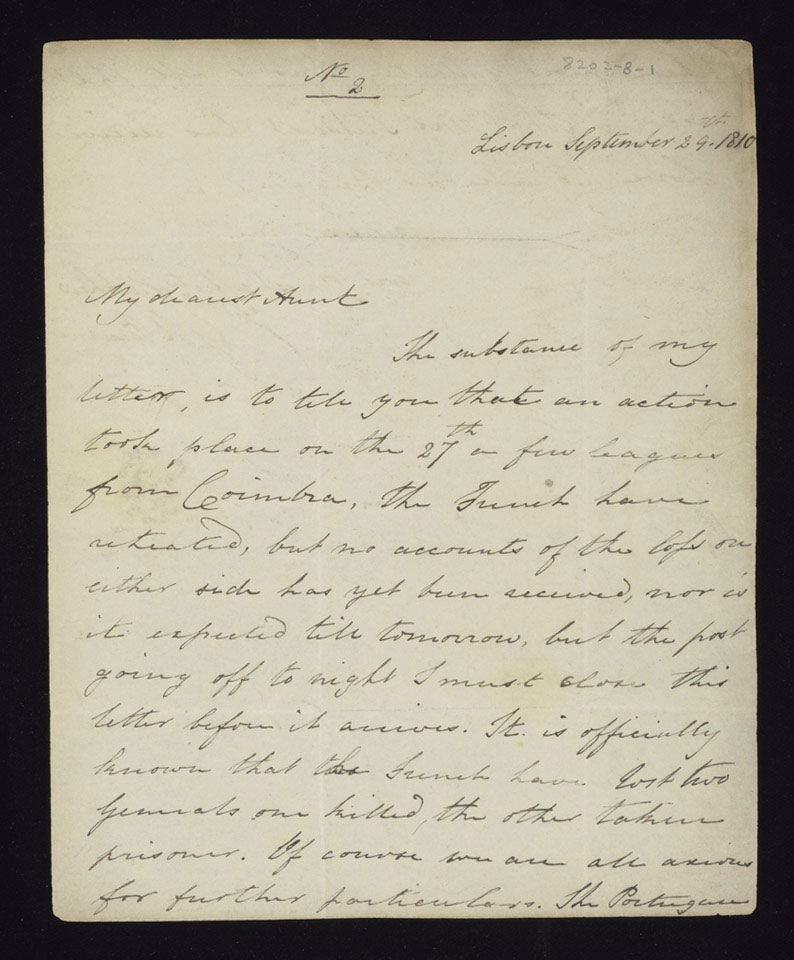 No 2
8202-8-1
Lisbon September 29th 1810
My dearest Aunt
The substance of my
letter, is to tell you that an action
took place on the 27th a few leagues
from Coimbra, the French have
retreated, but no accounts of the loss on
either side has yet been received, nor is
it expected till tomorrow, but the post
going off to night I must close this
letter before it arrives. It is officially
known that the French have lost two
Generals one killed, the other taken
prisoner. Of course we are all anxious
for further particulars. The Portuguese